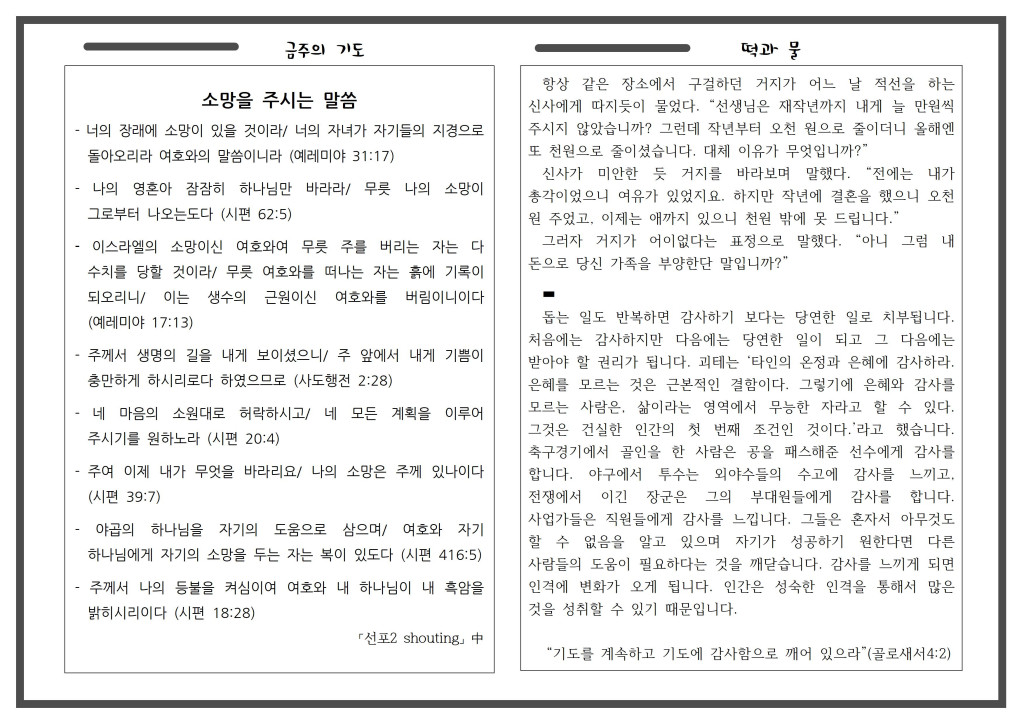 금주의 기도
소망을 주시는 말씀
- 너의 장래에 소망이 있을 것이라/ 너의 자녀가 자기들의 지경으로
돌아오리라 여호와의 말씀이니라 (예레미야 31:17)
- 나의 영혼아 잠잠히 하나님만 바라라/ 무릇 나의 소망이
그로부터 나오는도다 (시편 62:5)
- 이스라엘의 소망이신 여호와여 무릇 주를 버리는 자는 다
수치를 당할 것이라/ 무릇 여호와를 떠나는 자는 흙에 기록이
되오리니/ 이는 생수의 근원이신 여호와를 버림이니이다
(예레미야 17:13)
- 주께서 생명의 길을 내게 보이셨으니/ 주 앞에서 내게 기쁨이
충만하게 하시리로다 하였으므로 (사도행전 2:28)
- 네 마음의 소원대로 허락하시고/ 네 모든 계획을 이루어
주시기를 원하노라 (시편 20:4)
- 주여 이제 내가 무엇을 바라리요/ 나의 소망은 주께 있나이다
(시편 39:7)
- 야곱의 하나님을 자기의 도움으로 삼으며/ 여호와 자기
하나님에게 자기의 소망을 두는 자는 복이 있도다 (시편 416:5)
- 주께서 나의 등불을 켜심이여 여호와 내 하나님이 내 흑암을
밝히시리이다 (시편 18:28)
「선포2 shouting」中
떡과 물
항상 같은 장소에서 구걸하던 거지가 어느 날 적선을 하는
신사에게 따지듯이 물었다. “선생님은 재작년까지 내게 늘 만원씩
주시지 않았습니까? 그런데 작년부터 오천 원으로 줄이더니 올해엔
또 천원으로 줄이셨습니다. 대체 이유가 무엇입니까?”
신사가 미안한 듯 거지를 바라보며 말했다. “전에는 내가
총각이었으니 여유가 있었지요. 하지만 작년에 결혼을 했으니 오천
원 주었고, 이제는 애까지 있으니 천원 밖에 못 드립니다.”
그러자 거지가 어이없다는 표정으로 말했다. “아니 그럼 내
돈으로 당신 가족을 부양한단 말입니까?”
돕는 일도 반복하면 감사하기 보다는 당연한 일로 치부됩니다.
처음에는 감사하지만 다음에는 당연한 일이 되고 그 다음에는
받아야 할 권리가 됩니다. 괴테는 ‘타인의 온정과 은혜에 감사하라.
은혜를 모르는 것은 근본적인 결함이다. 그렇기에 은혜와 감사를
모르는 사람은, 삶이라는 영역에서 무능한 자라고 할 수 있다.
그것은 건실한 인간의 첫 번째 조건인 것이다.’라고 했습니다.
축구경기에서 골인을 한 사람은 공을 패스해준 선수에게 감사를
합니다. 야구에서 투수는 외야수들의 수고에 감사를 느끼고,
전쟁에서 이긴 장군은 그의 부대원들에게 감사를 합니다.
사업가들은 직원들에게 감사를 느낍니다. 그들은 혼자서 아무것도
할 수 없음을 알고 있으며 자기가 성공하기 원한다면 다른
사람들의 도움이 필요하다는 것을 깨닫습니다. 감사를 느끼게 되면
인격에 변화가 오게 됩니다. 인간은 성숙한 인격을 통해서 많은
것을 성취할 수 있기 때문입니다.
“기도를 계속하고 기도에 감사함으로 깨어 있으라”(골로새서4:2)